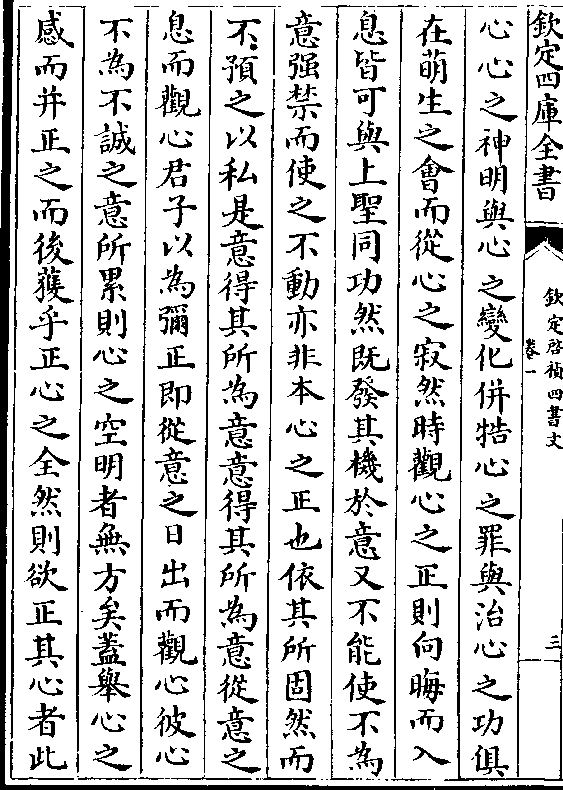 欽定四庫全書
欽定啓禎四書文
卷一
三
心心之神明與心之變化併牿心之罪與治心之功俱
在萌生之會而從心之寂然時觀心之正則向晦而入
息皆可與上聖同功然既發其機於意又不能使不為
意强禁而使之不動亦非本心之正也依其所固然而
不預之以私是意得其所為意意得其所為意從意之
息而觀心君子以為彌正即從意之日出而觀心彼心
不為不誠之意所累則心之空明者無方矣蓋舉心之
感而并正之而後獲乎正心之全然則欲正其心者此